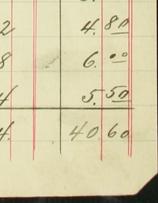 2 4.80
8 6.00
4 5.50
4. 40 60